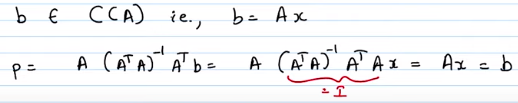 b ∈ C(A) ie., b = Ax
p = A (AᵀA)⁻¹ Aᵀb = A (AᵀA)⁻¹ AᵀA x = Ax = b
= I